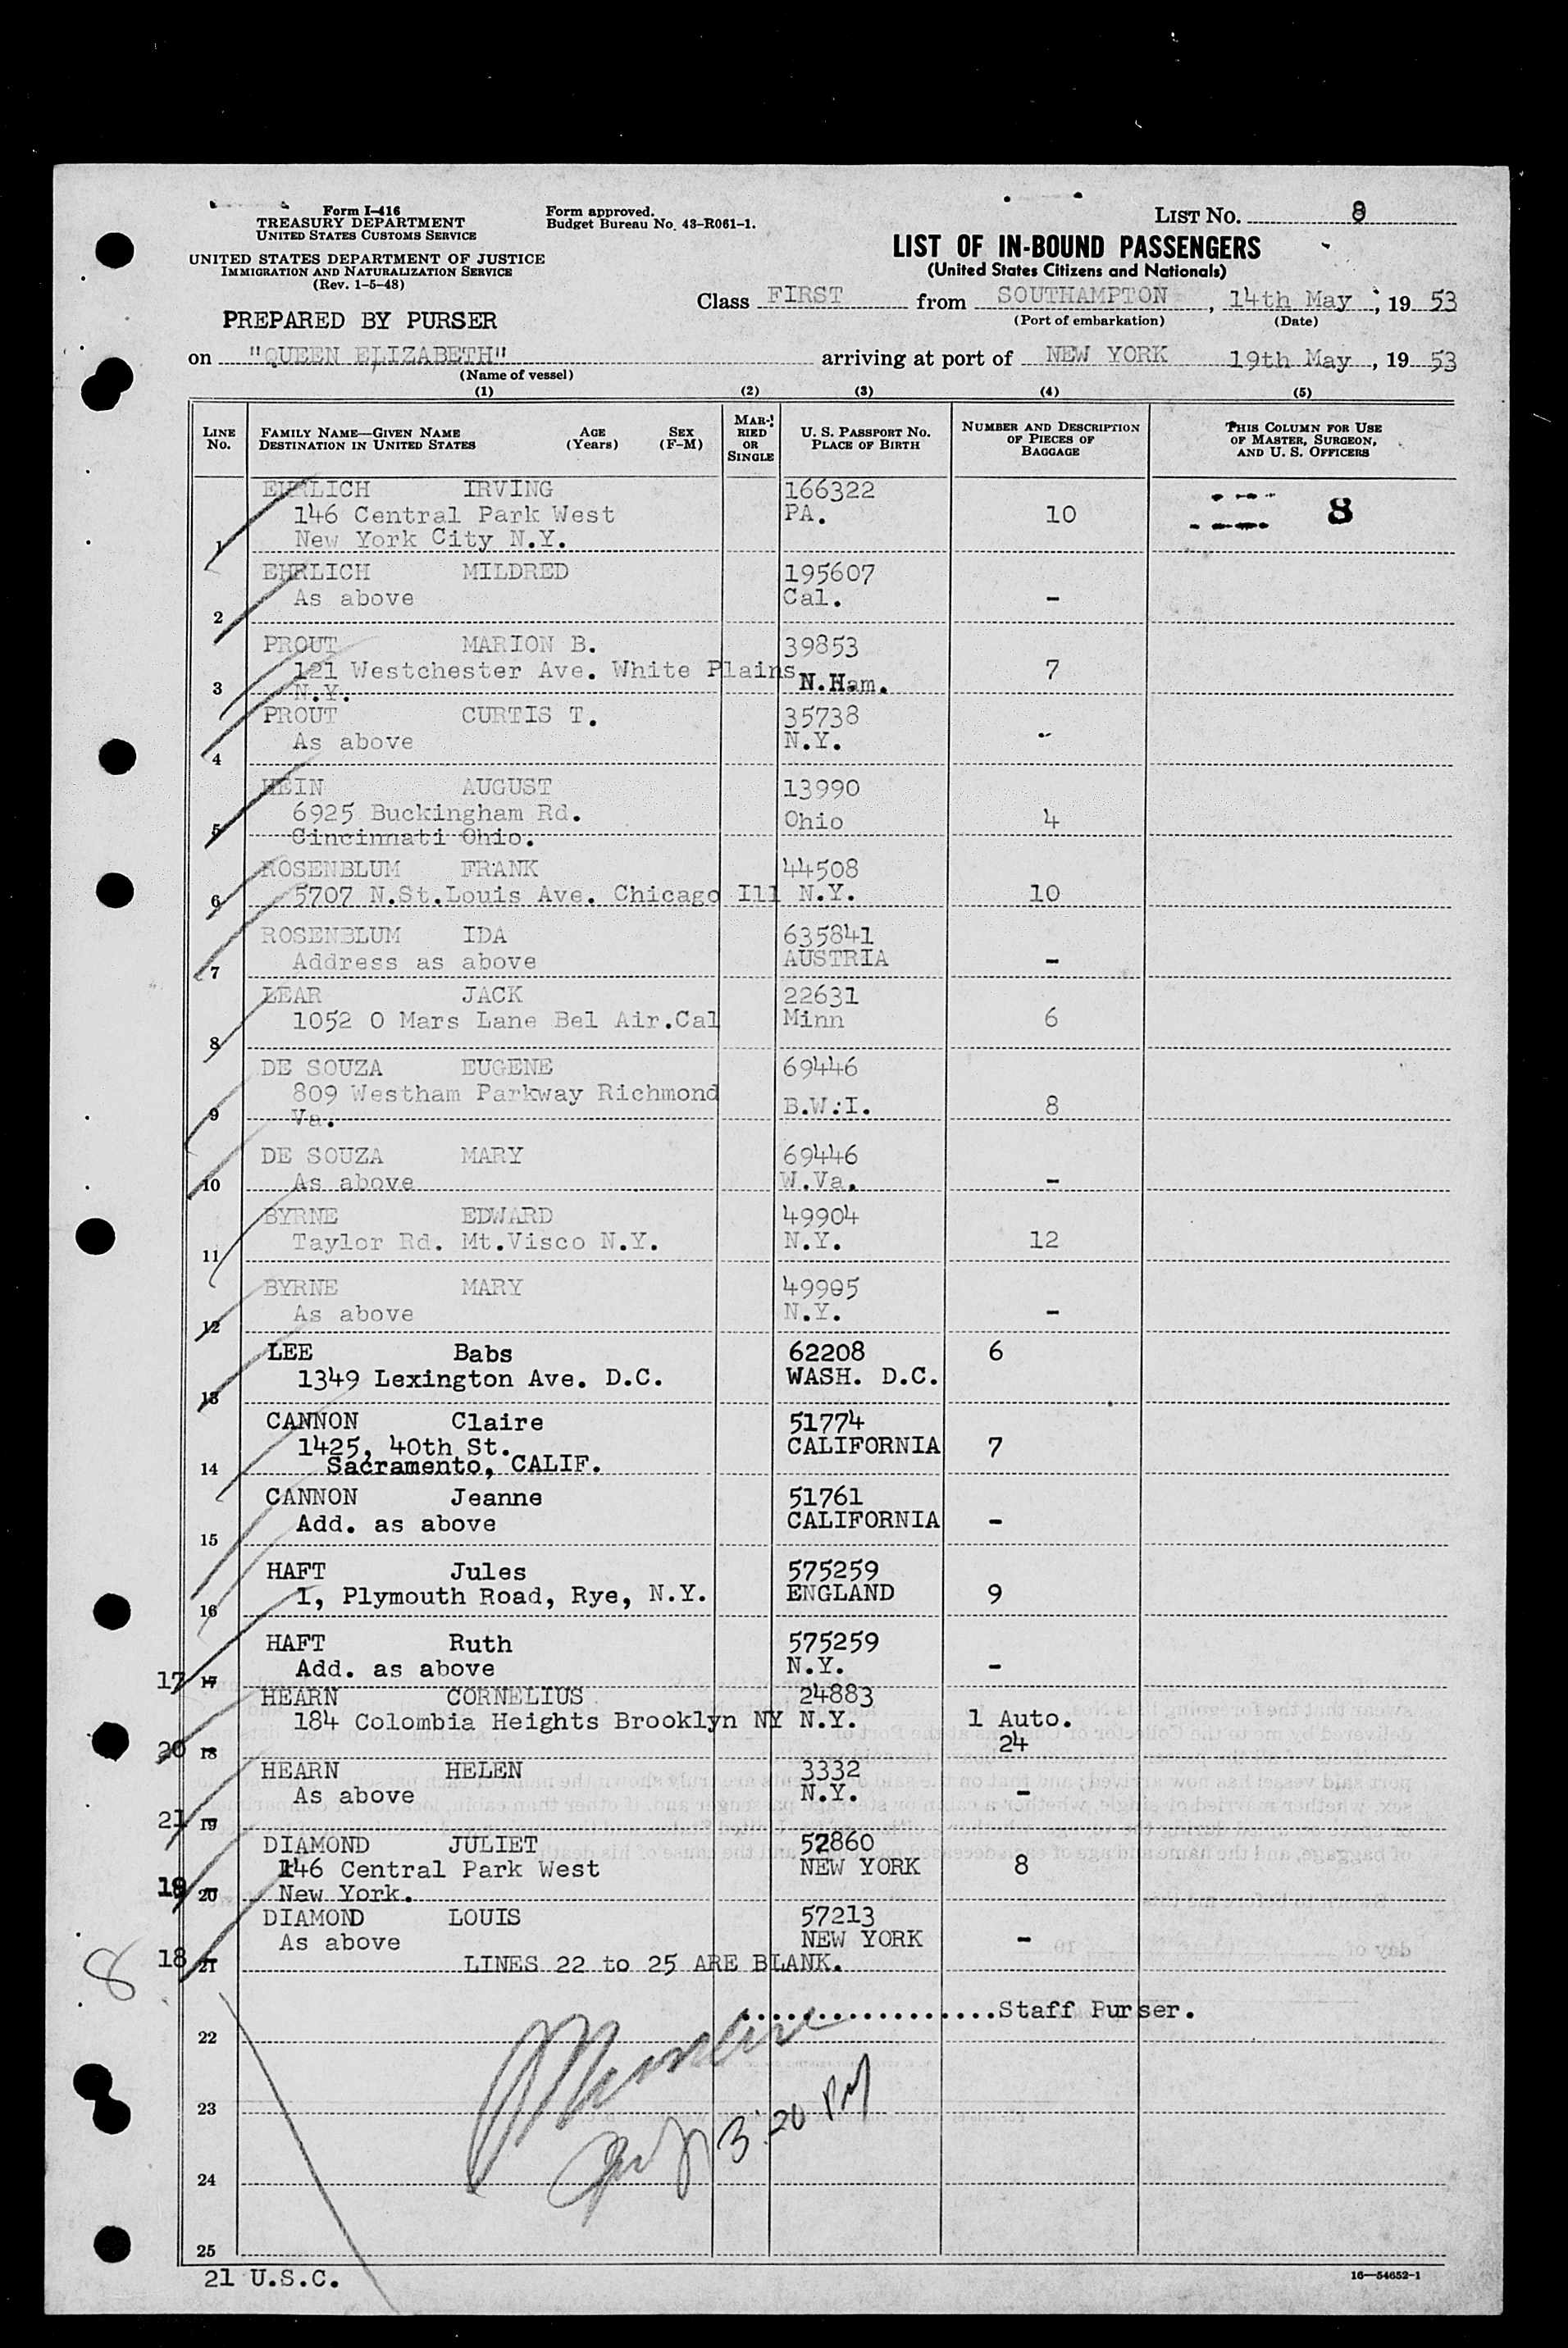 Form I-416
TREASURY DEPARTMENT
UNITED STATES CUSTOMS SERVICE
UNITED STATES DEPARTMENT OF JUSTICE
IMMIGRATION AND NATURALIZATION SERVICE
(Rev. 1-5-48)
PREPARED BY PURSER
Form approved.
Budget Bureau No. 43-R061-1.
LIST NO. 8
LIST OF IN-BOUND PASSENGERS
(United States Citizens and Nationals)
Class FIRST from SOUTHAMPTON, 14th May, 19 53
(Port of embarkation) (Date)
on "QUEEN ELIZABETH" arriving at port of NEW YORK 19th May, 19 53
(Name of vessel)
(1) (2) (3) (4) (5)
LINE No. FAMILY NAME—GIVEN NAME DESTINATION IN UNITED STATES AGE (Years) SEX (F-M) MARRIED OR SINGLE U. S. PASSPORT NO. PLACE OF BIRTH NUMBER AND DESCRIPTION OF PIECES OF BAGGAGE THIS COLUMN FOR USE OF MASTER, SURGEON, AND U. S. OFFICERS
EHRLICH IRVING 166322
146 Central Park West PA. 10 8
1 New York City N.Y.
EHRLICH MILDRED 195607
As above Cal. -
2
PROUT MARION B. 39853
121 Westchester Ave. White Plains 7
3 N.Y. N.Ham.
PROUT CURTIS T. 35738
As above N.Y. -
4
HEIN AUGUST 13990
6925 Buckingham Rd. Ohio 4
5 Cincinnati Ohio.
ROSENBLUM FRANK 44508
6 5707 N.St.Louis Ave. Chicago Ill N.Y. 10
ROSENBLUM IDA 635841
7 Address as above AUSTRIA -
LEAR JACK 22631
1052 O Mars Lane Bel Air.Cal Minn 6
8
DE SOUZA EUGENE 69446
809 Westham Parkway Richmond B.W.I. 8
9 Va.
DE SOUZA MARY 69446
10 As above W.Va. -
BYRNE EDWARD 49904
11 Taylor Rd. Mt.Visco N.Y. N.Y. 12
BYRNE MARY 49905
12 As above N.Y. -
LEE Babs 62208 6
1349 Lexington Ave. D.C. WASH. D.C.
13
CANNON Claire 51774
1425, 40th St. CALIFORNIA 7
14 Sacramento, CALIF.
CANNON Jeanne 51761
Add. as above CALIFORNIA -
15
HAFT Jules 575259
1, Plymouth Road, Rye, N.Y. ENGLAND 9
16
HAFT Ruth 575259
Add. as above N.Y. -
17 17
HEARN CORNELIUS 24883
184 Colombia Heights Brooklyn NY N.Y. 1 Auto.
20 18 24
HEARN HELEN 3332
As above N.Y. -
21 19
DIAMOND JULIET 52860
146 Central Park West NEW YORK 8
19 20 New York.
DIAMOND LOUIS 57213
As above NEW YORK -
18 21 LINES 22 to 25 ARE BLANK.
8
..................Staff Purser.
22
23
3:20 PM
24
25
21 U.S.C.
16—54652-1